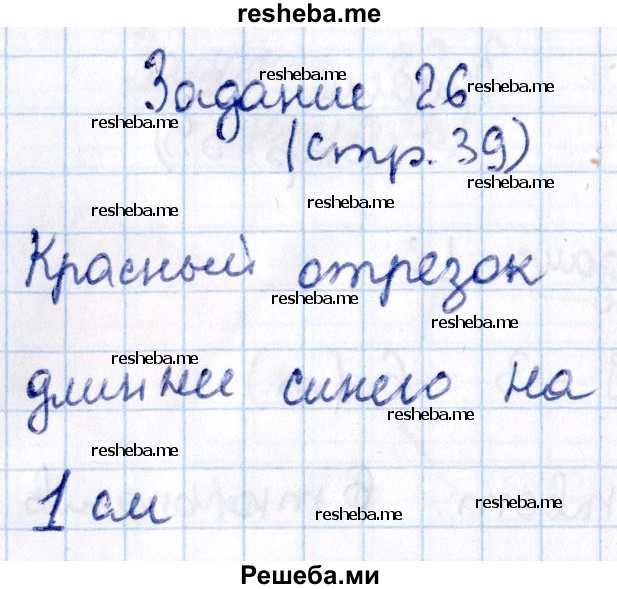 resheba.me
Задание 26
resheba.me
resheba.me
resheba.me
(стр. 39)
resheba.me
resheba.me
resheba.me
Красный отрезок
resheba.me
resheba.me
resheba.me
длиннее синего на
resheba.me
resheba.me
1 см
resheba.me
resheba.me
Решеба.ми